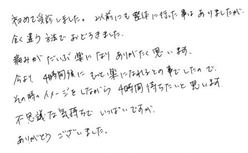 初めて受診しました。以前にも整体に行った事はありましたが、
全く違う方法でおどろきました。
痛みがだいぶ楽になりありがたく思います。
今より4時間後にもっと楽になれるとの事でしたので、
その時のイメージをしながら4時間待ちたいと思います。
不思議な気持ちでいっぱいですが、
ありがとうございました。